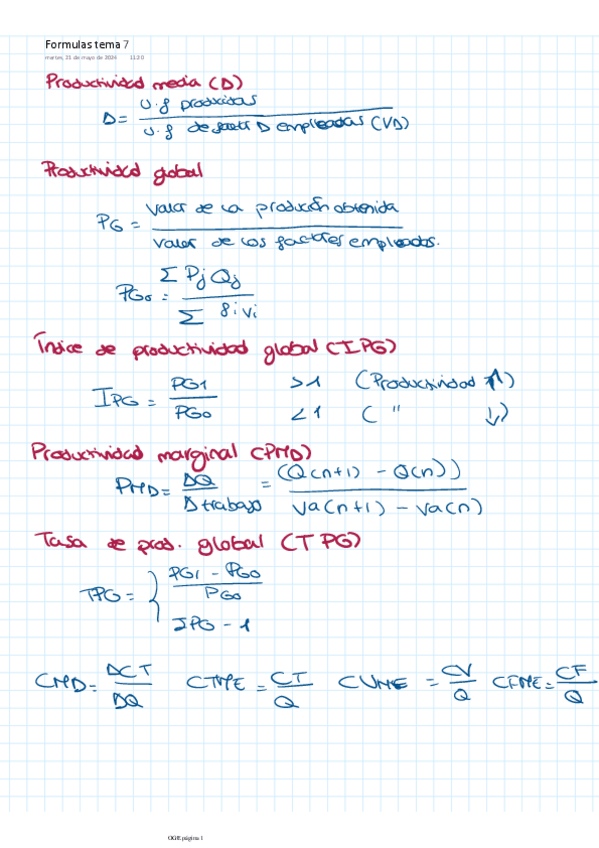 Formulas tema 7
martes, 21 de mayo de 2024 11:20
Productividad media (D)
D = u.f producidas / u.f de factor D empleadas (VD)
Productividad global
PG = Valor de la producción obtenida / Valor de los factores empleados.
PG0 = Σ Pj Qj / Σ fi vi
Índice de productividad global (IPG)
IPG = PG1 / PG0 >1 (Productividad ↑)
<1 ( " ↓)
Productividad marginal (PMD)
PMD = ΔQ / Δ trabajo = (Q(n+1) - Q(n)) / Va(n+1) - Va(n)
Tasa de prod. global (TPG)
TPG = { PG1 - PG0 / PG0
IPG - 1
CMD = ΔCT / ΔQ CTME = CT / Q CVME = CV / Q CFME = CF / Q
OGE página 1